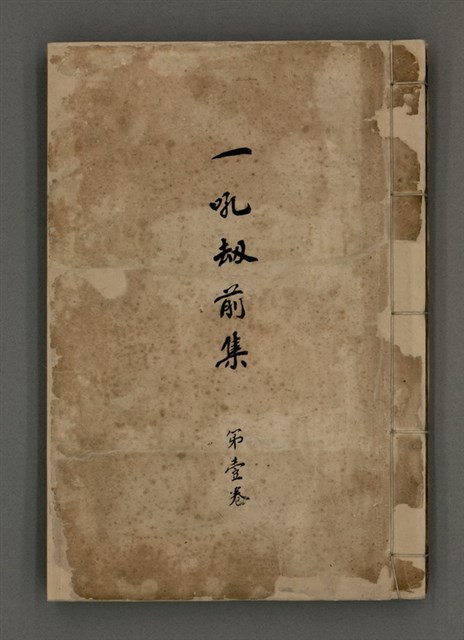 一吼劫前集
第壹卷